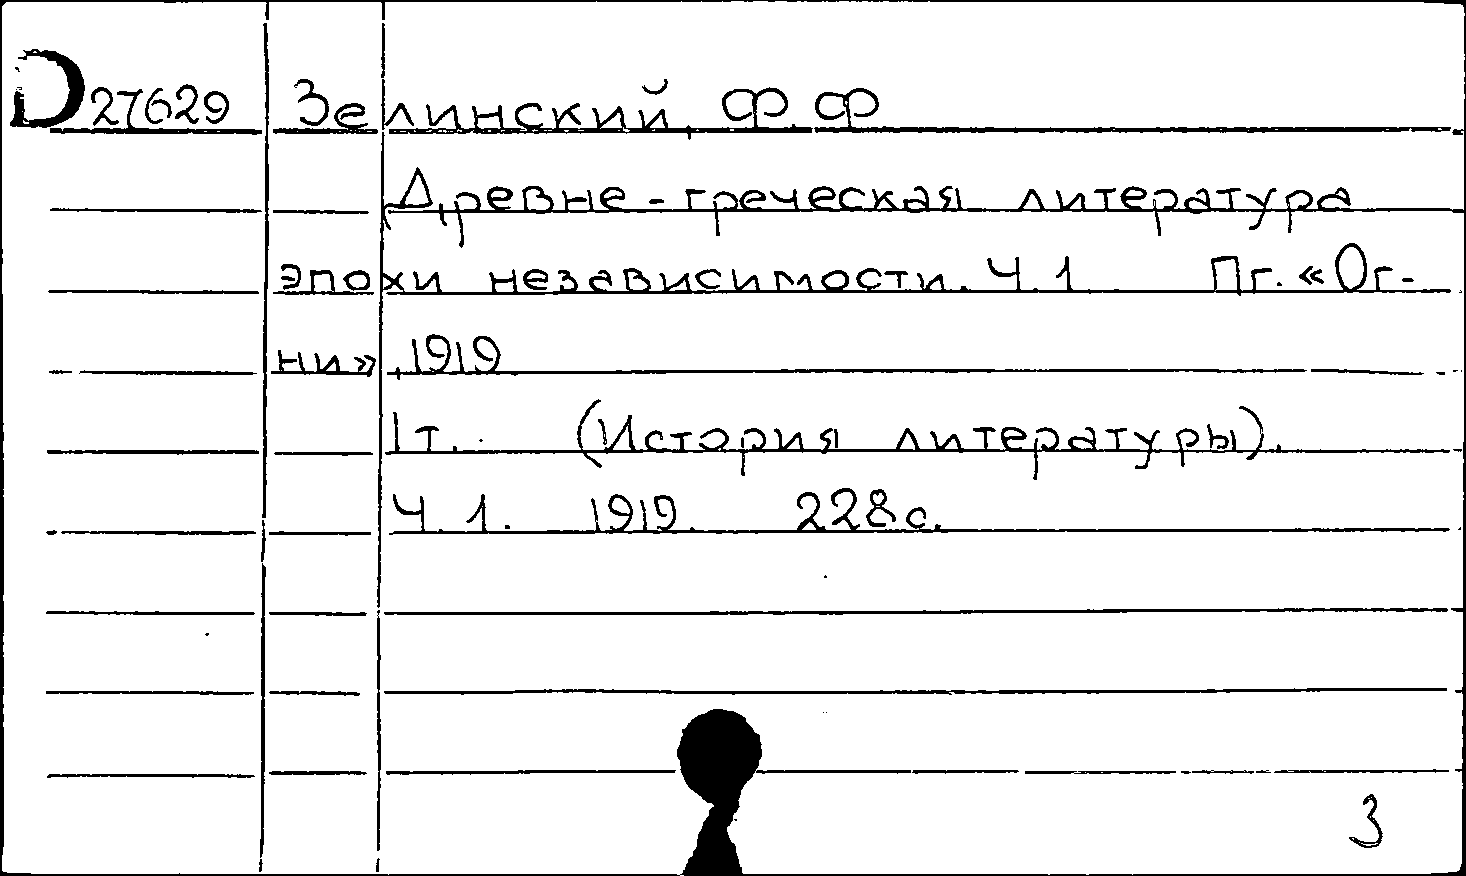 D27629 Зелинский, Ф.Ф
Древне-греческая литература
эпохи независимости. Ч.1 Пг. «Ог-
ни», 1919
1т. (История литературы).
Ч.1. 1919. 228с.
З